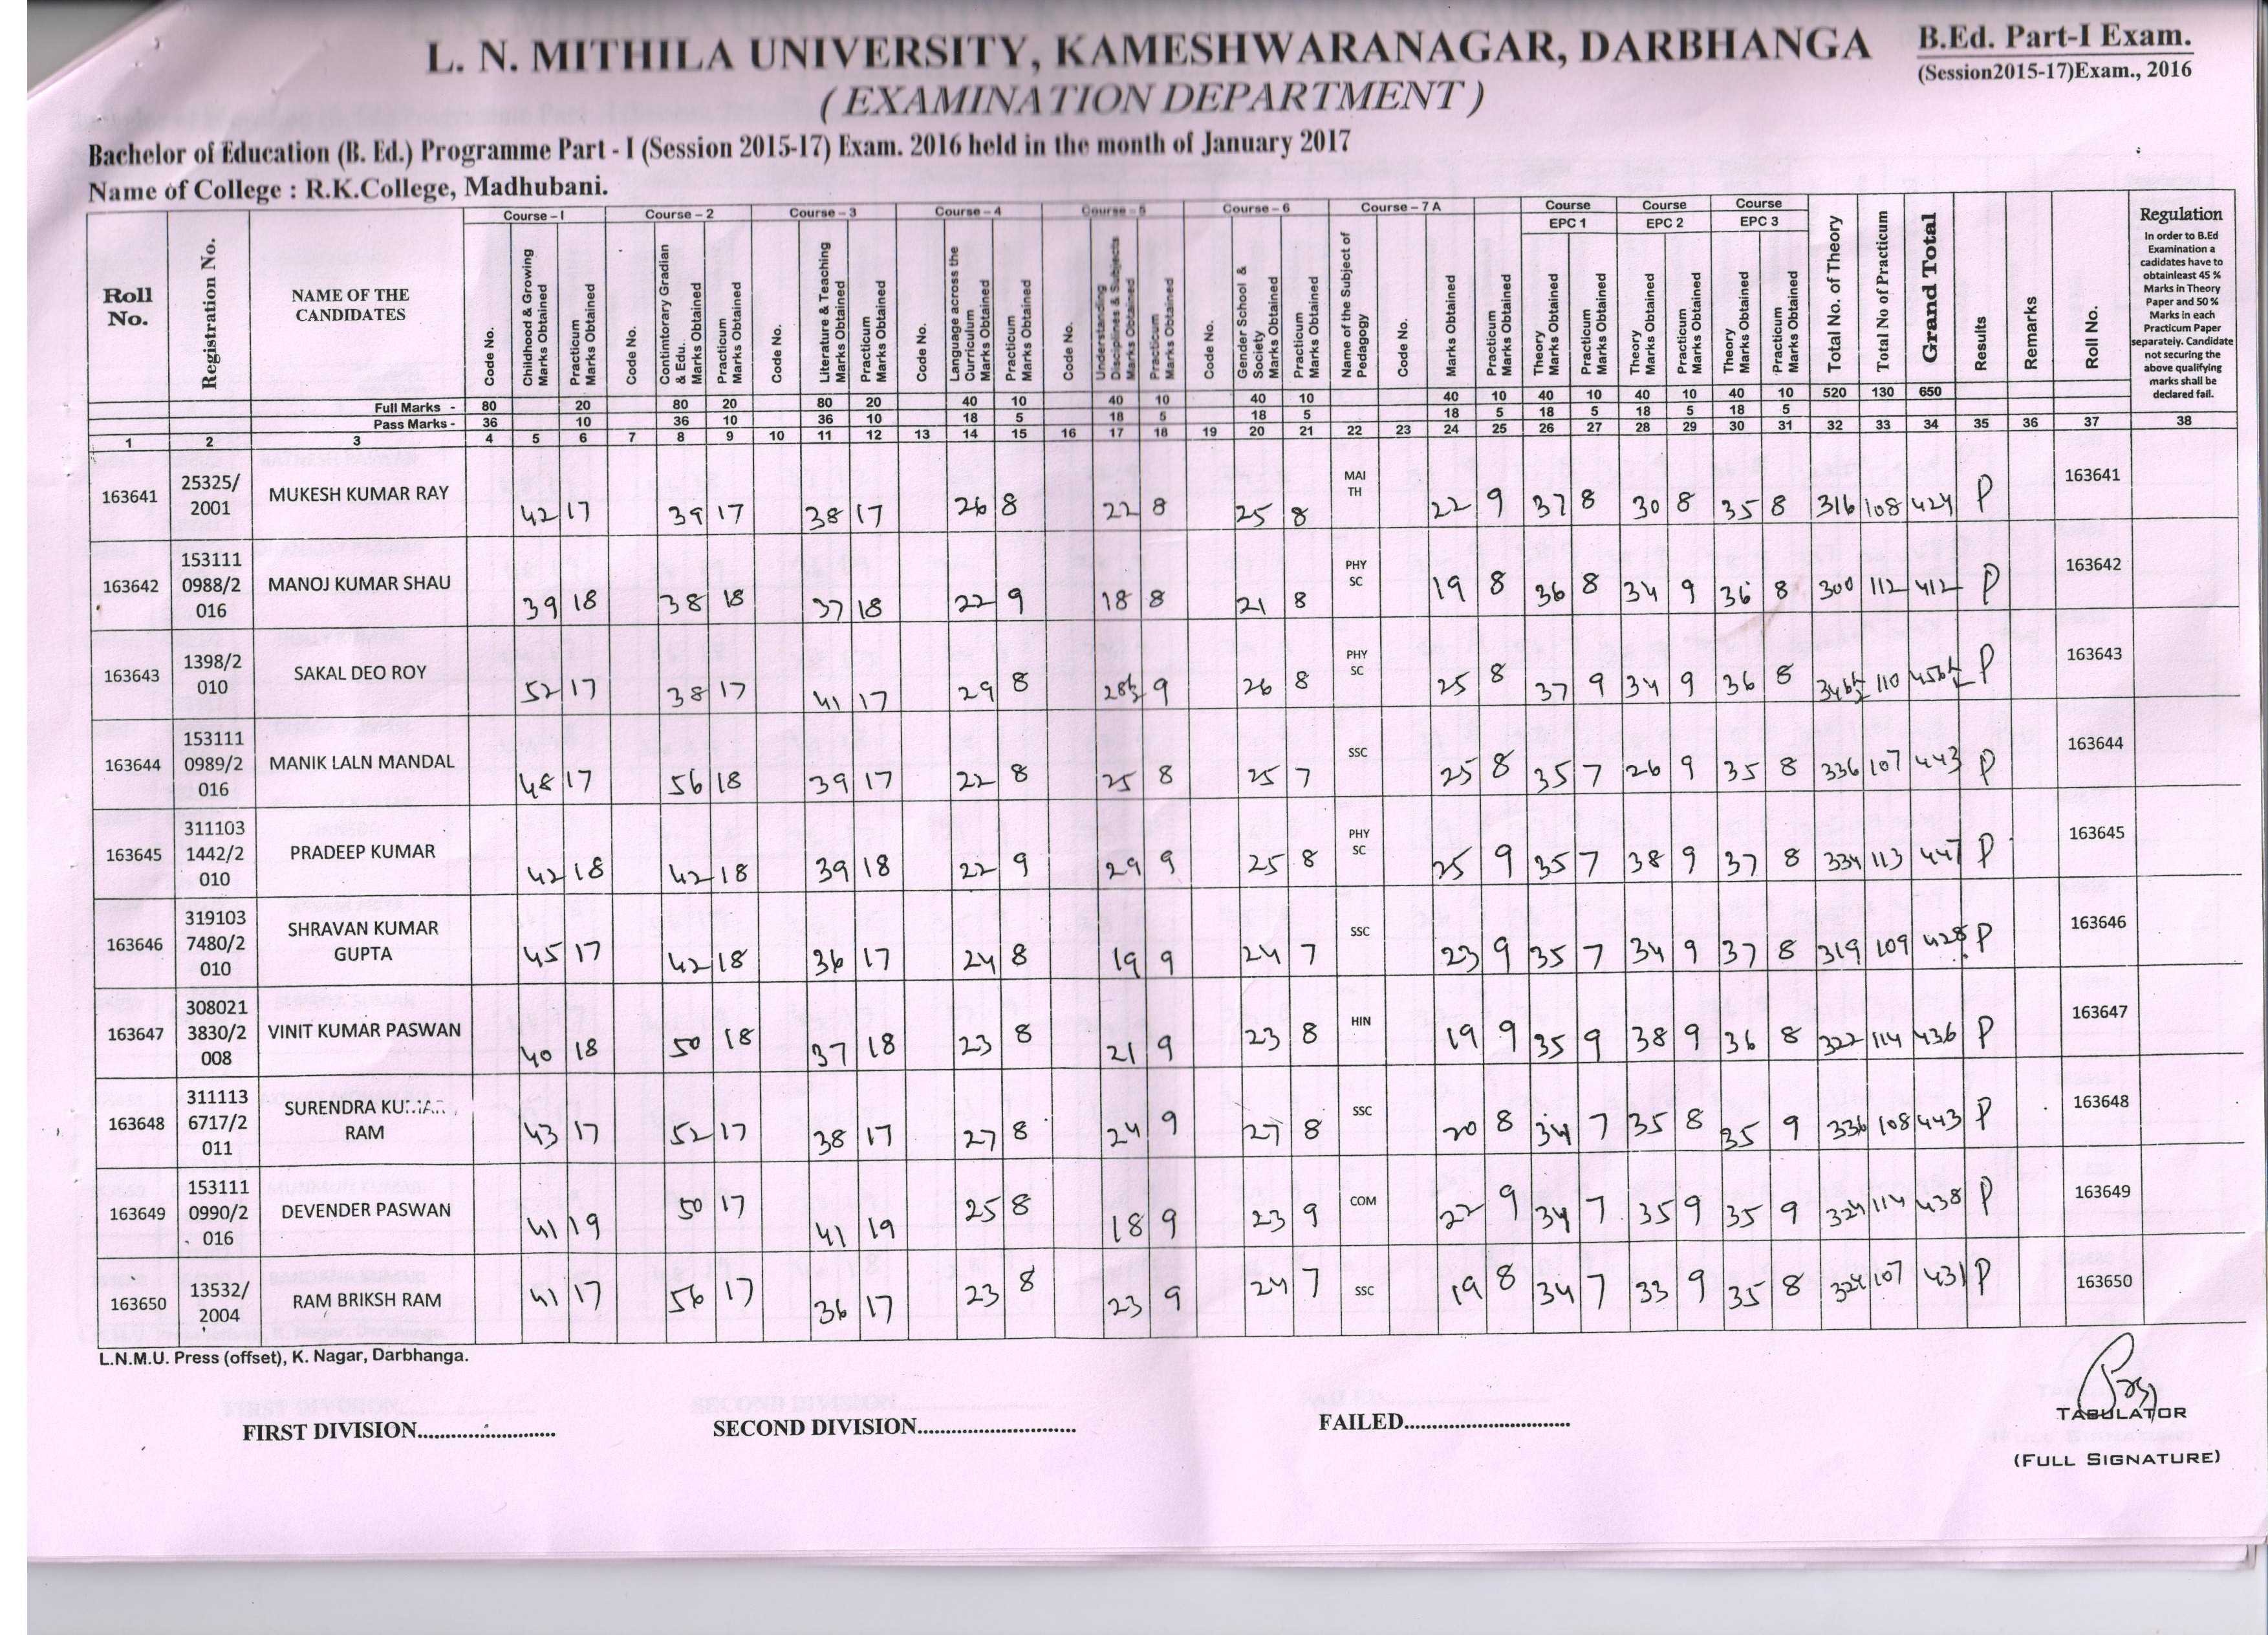 L. N. MITHILA UNIVERSITY, KAMESHWARANAGAR, DARBHANGA
B.Ed. Part-I Exam.
(Session2015-17)Exam., 2016
( EXAMINATION DEPARTMENT )
Bachelor of Education (B. Ed.) Programme Part - I (Session 2015-17) Exam. 2016 held in the month of January 2017
Name of College : R.K.College, Madhubani.
Course – I Course – 2 Course – 3 Course – 4 Course – 5 Course – 6 Course – 7 A Course EPC 1 Course EPC 2 Course EPC 3
Roll No.
Registration No.
NAME OF THE CANDIDATES
Code No.
Childhood & Growing Marks Obtained
Practicum Marks Obtained
Code No.
Contimtorary Gradian & Edu. Marks Obtained
Practicum Marks Obtained
Code No.
Literature & Teaching Marks Obtained
Practicum Marks Obtained
Code No.
Language across the Curriculum Marks Obtained
Practicum Marks Obtained
Code No.
Understanding Disciplines & Subjects Marks Obtained
Practicum Marks Obtained
Code No.
Gender School & Society Marks Obtained
Practicum Marks Obtained
Name of the Subject of Pedagogy
Code No.
Marks Obtained
Practicum Marks Obtained
Theory Marks Obtained
Practicum Marks Obtained
Theory Marks Obtained
Practicum Marks Obtained
Theory Marks Obtained
Practicum Marks Obtained
Total No. of Theory
Total No of Practicum
Grand Total
Results
Remarks
Roll No.
Regulation
In order to B.Ed
Examination a
cadidates have to
obtainleast 45 %
Marks in Theory
Paper and 50 %
Marks in each
Practicum Paper
separately. Candidate
not securing the
above qualifying
marks shall be
declared fail.
Full Marks - 80 20 80 20 80 20 40 10 40 10 40 10 40 10 40 10 40 10 40 10 520 130 650
Pass Marks - 36 10 36 10 36 10 18 5 18 5 18 5 18 5 18 5 18 5 18 5
1 2 3 4 5 6 7 8 9 10 11 12 13 14 15 16 17 18 19 20 21 22 23 24 25 26 27 28 29 30 31 32 33 34 35 36 37 38
163641 25325/2001 MUKESH KUMAR RAY 42 17 39 17 38 17 26 8 22 8 25 8 MAI TH 22 9 37 8 30 8 35 8 316 108 424 P 163641
163642 1531110988/2016 MANOJ KUMAR SHAU 39 18 38 18 37 18 22 9 18 8 21 8 PHY SC 19 8 36 8 34 9 36 8 300 112 412 P 163642
163643 1398/2010 SAKAL DEO ROY 52 17 38 17 41 17 29 8 9 26 8 PHY SC 25 8 37 9 34 9 36 8 110 P 163643
163644 1531110989/2016 MANIK LALN MANDAL 48 17 56 18 39 17 22 8 25 8 25 7 SSC 25 8 35 7 26 9 35 8 336 107 443 P 163644
163645 3111031442/2010 PRADEEP KUMAR 42 18 42 18 39 18 22 9 29 9 25 8 PHY SC 25 9 35 7 38 9 37 8 334 113 447 P 163645
163646 3191037480/2010 SHRAVAN KUMAR GUPTA 45 17 42 18 36 17 24 8 19 9 24 7 SSC 23 9 35 7 34 9 37 8 319 109 428 P 163646
163647 3080213830/2008 VINIT KUMAR PASWAN 40 18 50 18 37 18 23 8 21 9 23 8 HIN 19 9 35 9 38 9 36 8 322 114 436 P 163647
163648 3111136717/2011 SURENDRA KUMAR RAM 43 17 52 17 38 17 27 8 24 9 27 8 SSC 20 8 34 7 35 8 35 9 336 108 443 P 163648
163649 1531110990/2016 DEVENDER PASWAN 41 19 50 17 41 19 25 8 18 9 23 9 COM 22 9 34 7 35 9 35 9 324 114 438 P 163649
163650 13532/2004 RAM BRIKSH RAM 41 17 56 17 36 17 23 8 23 9 24 7 SSC 19 8 34 7 33 9 35 8 324 107 431 P 163650
L.N.M.U. Press (offset), K. Nagar, Darbhanga.
FIRST DIVISION..........................
SECOND DIVISION..............................
FAILED...............................
TABULATOR
(FULL SIGNATURE)